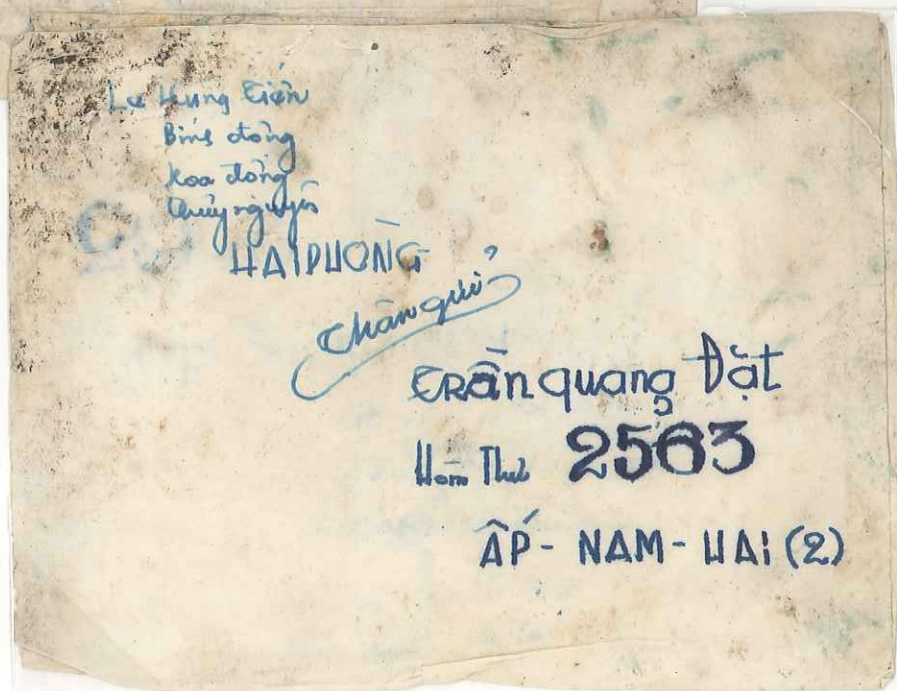 Lê Hưng Tiến
Bính động
Hoa động
Thủy nguyên
HAIPHONG
Thân gửi
Trần quang Đạt
Hòm Thư 2563
ẤP - NAM - HAI (2)